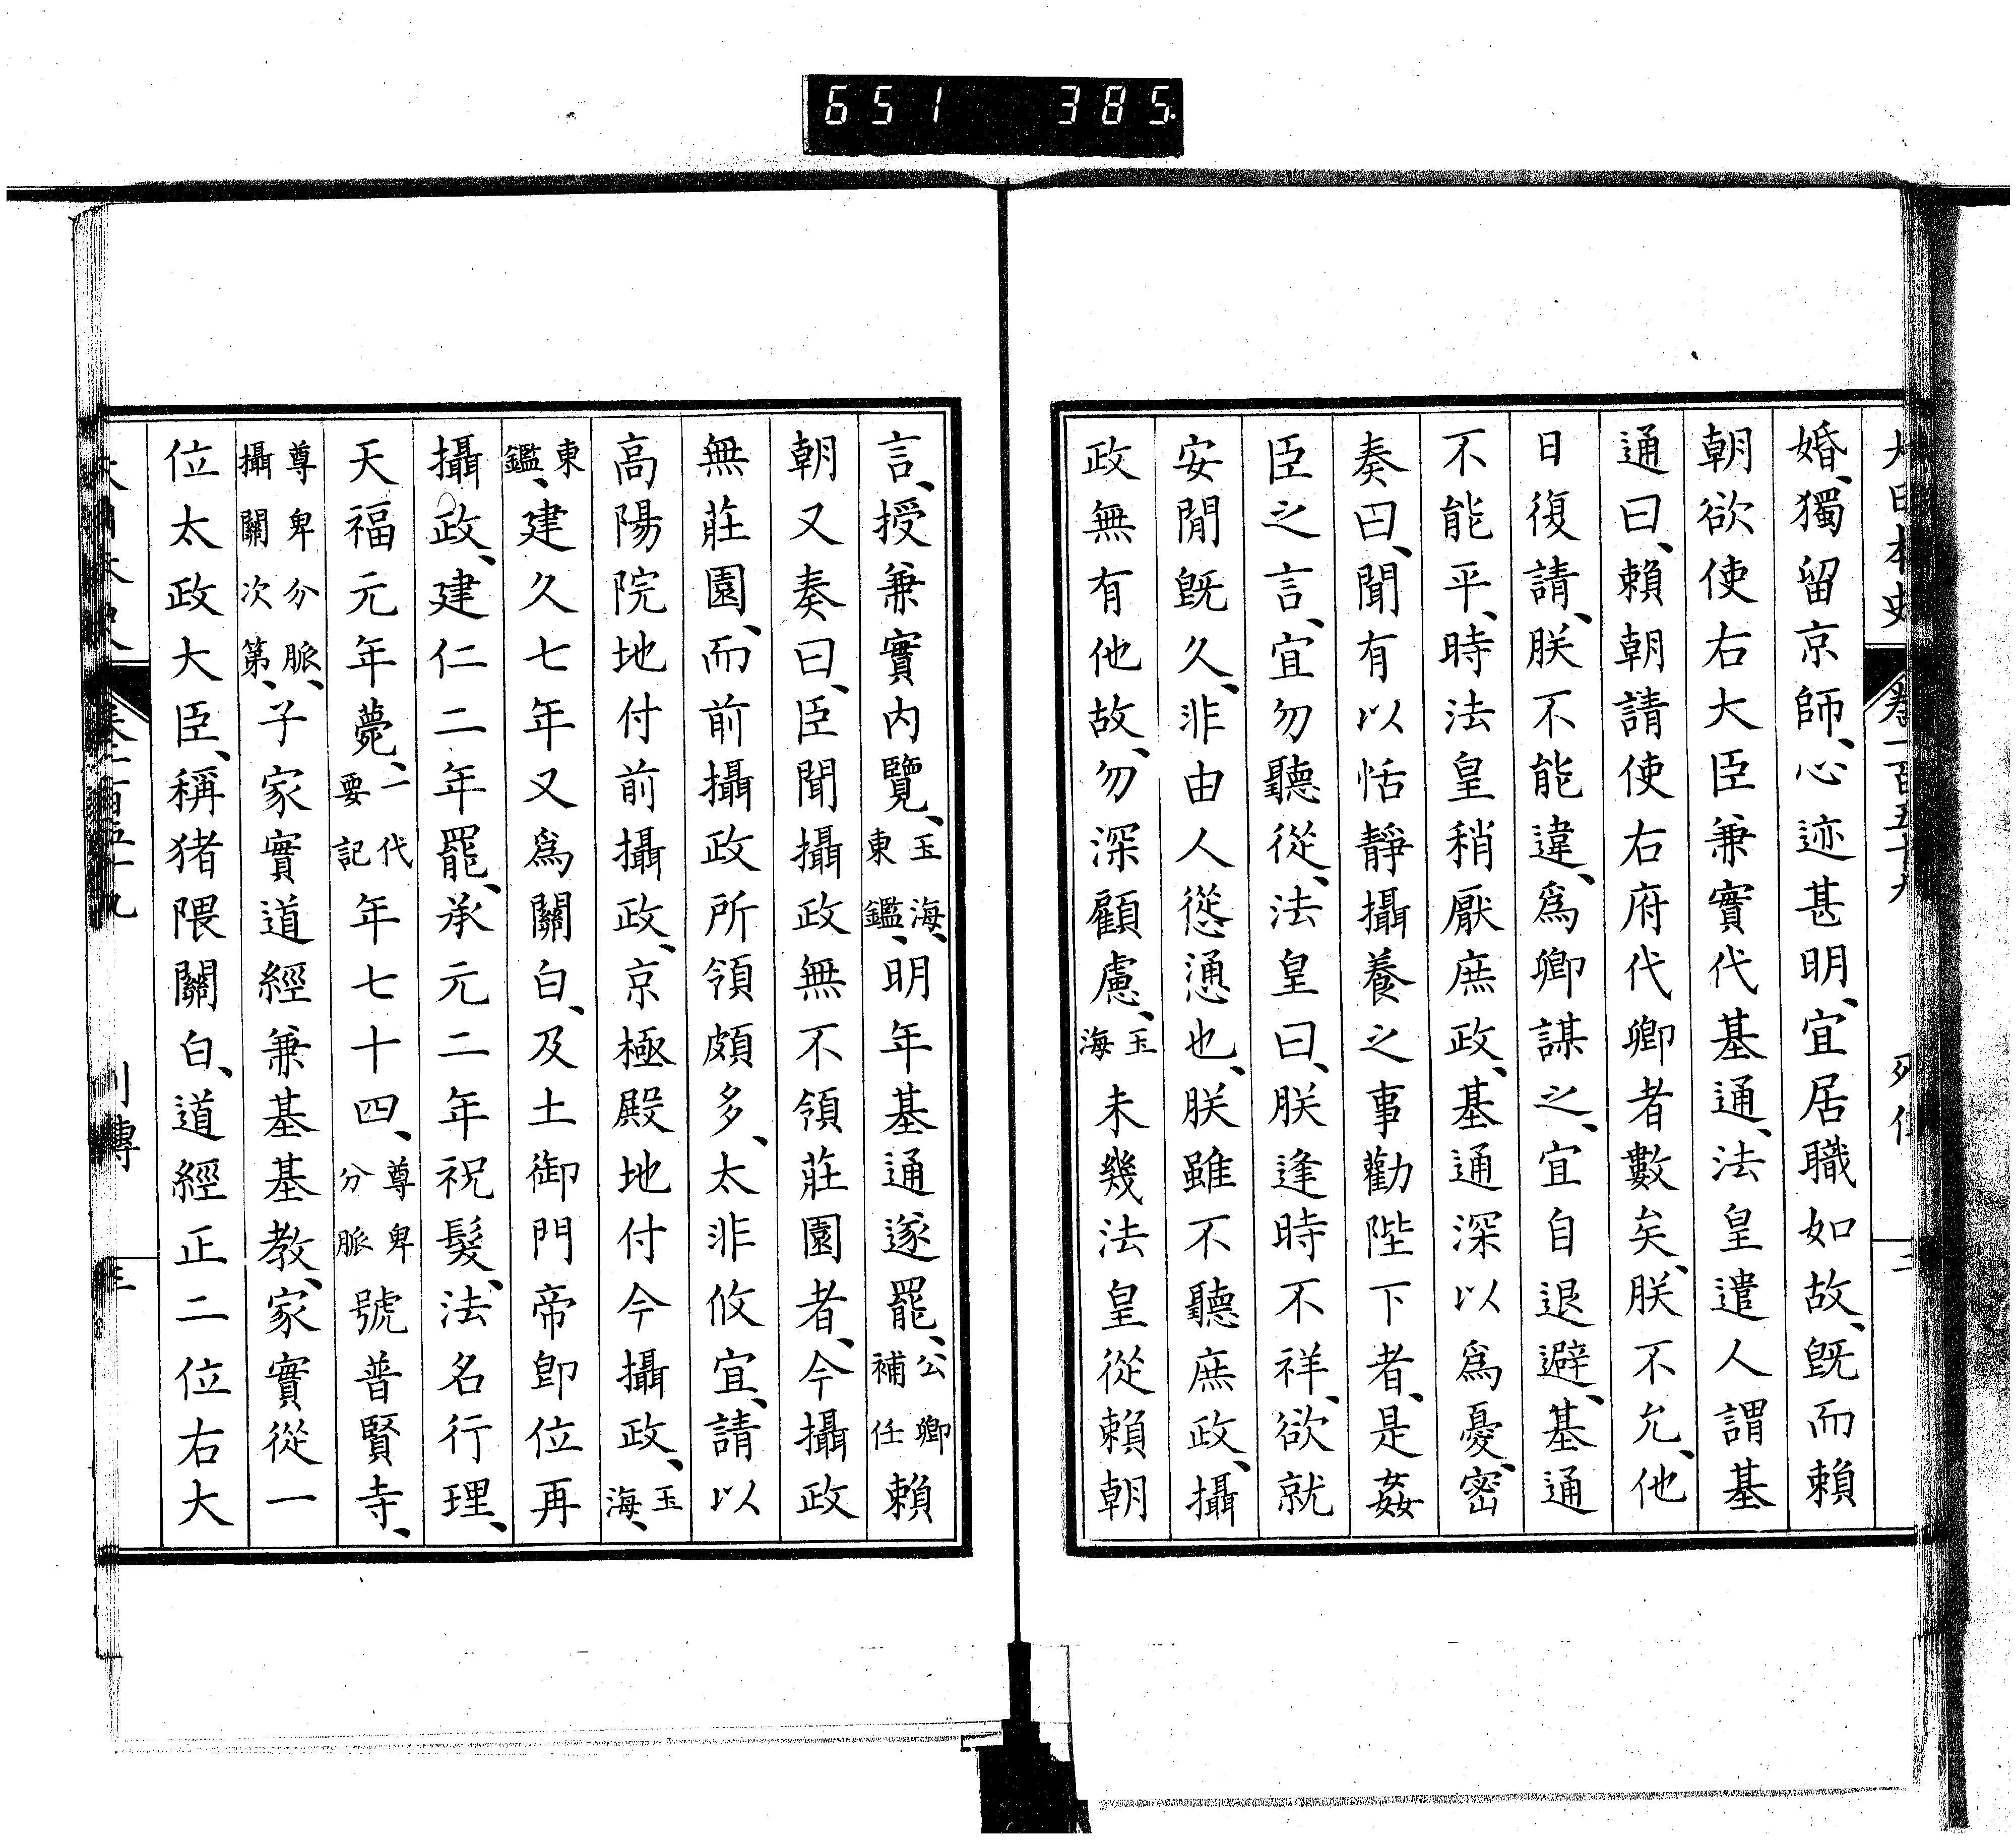 651 385
婚、獨留京師、心迹甚明、宜居職如故、既而賴
朝欲使右大臣兼實代基通、法皇遣人謂基
通曰、賴朝請使右府代卿者數矣、朕不允、他
日復請、朕不能違、爲卿謀之、宜自退避、基通
不能平、時法皇稍厭庶政、基通深以爲憂、密
奏曰、聞有以恬靜攝養之事勸陛下者、是姦
臣之言、宜勿聽從、法皇曰、朕逢時不祥、欲就
安閒既久、非由人慫慂也、朕雖不聽庶政、攝
政無有他故、勿深顧慮、玉海未幾法皇從賴朝
言、授兼實内覽、玉海、東鑑、明年基通遂罷、公卿補任賴
朝又奏曰、臣聞攝政無不領莊園者、今攝政
無莊園、而前攝政所領頗多、太非攸宜、請以
高陽院地付前攝政、京極殿地付今攝政、玉海、
東鑑、建久七年又爲關白、及土御門帝卽位再
攝政、建仁二年罷、承元二年祝髮、法名行理、
天福元年薨、一代要記年七十四、尊卑分脈號普賢寺、
尊卑分脈、攝關次第、子家實道經兼基基教、家實從一
位太政大臣、稱猪隈關白、道經正二位右大